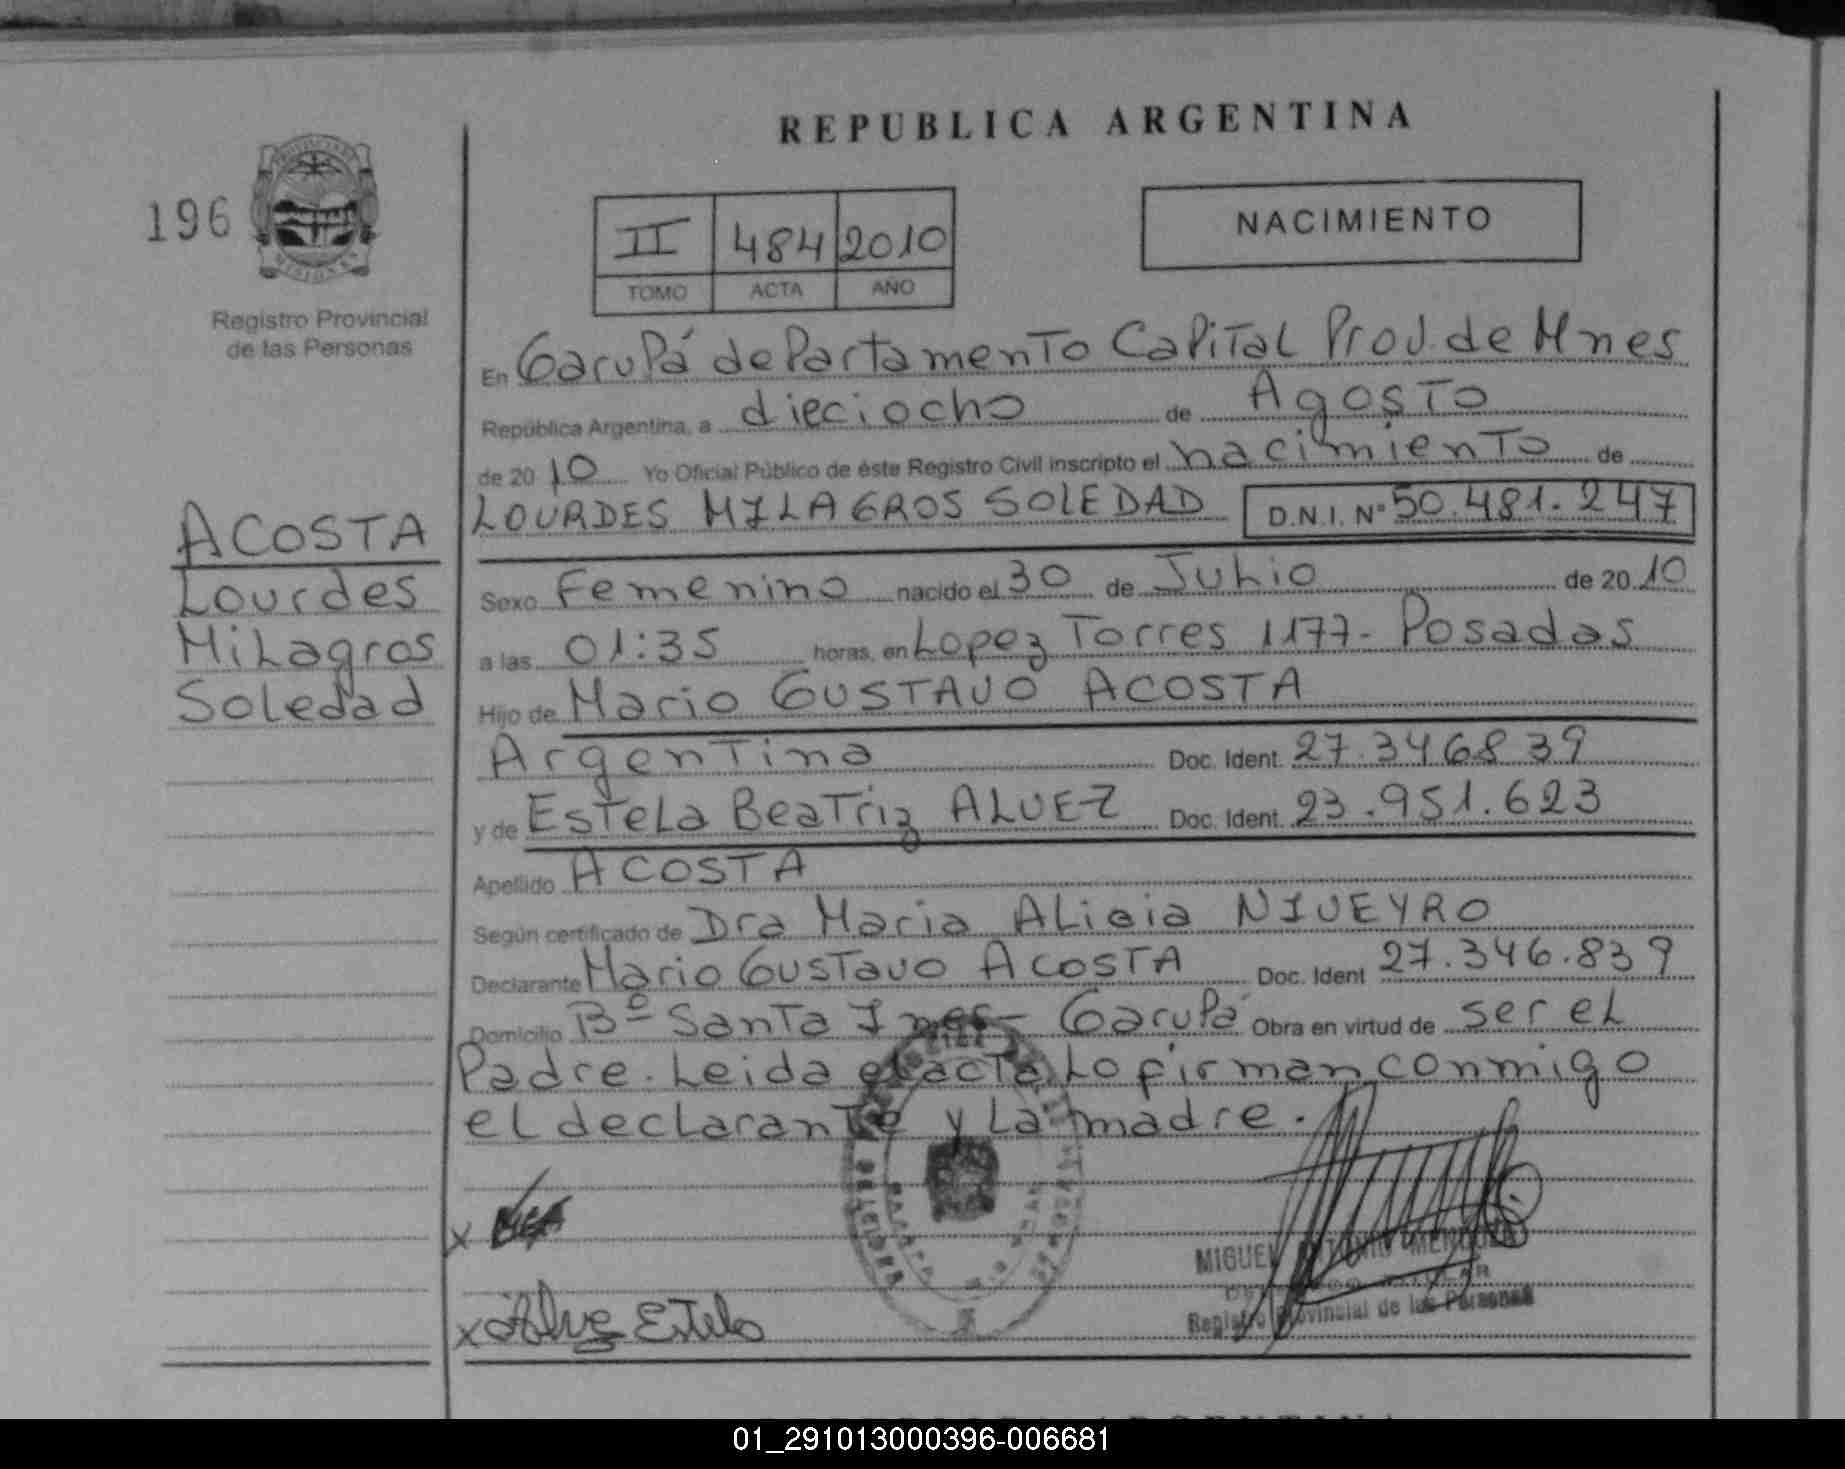 REPUBLICA ARGENTINA
196
PROVINCIA DE MISIONES
Registro Provincial
de las Personas
II 484 2010
TOMO ACTA AÑO
NACIMIENTO
En Garupá departamento Capital Prov. de Mnes
República Argentina, a dieciocho de Agosto
de 2010 Yo Oficial Público de éste Registro Civil inscripto el nacimiento de
LOURDES MILAGROS SOLEDAD D.N.I. N° 50.481.247
ACOSTA
Lourdes
Milagros
Soledad
Sexo Femenino nacido el 30 de Julio de 2010
a las 01:35 horas, en Lopez Torres 1177- Posadas
Hijo de Mario GUSTAVO ACOSTA
Argentina Doc. Ident. 27.346839
y de Estela Beatriz ALVEZ Doc. Ident. 23.951.623
Apellido ACOSTA
Según certificado de Dra Maria Alicia NIVEYRO
Declarante Mario Gustavo ACOSTA Doc. Ident 27.346.839
Domicilio Bº Santa Ines- Garupá Obra en virtud de ser el
Padre. Leida el acta Lo firman conmigo
el declarante y La madre.
x
x Alvez Estela
MIGUEL ANTONIO
Registro Provincial de las Personas
01_291013000396-006681